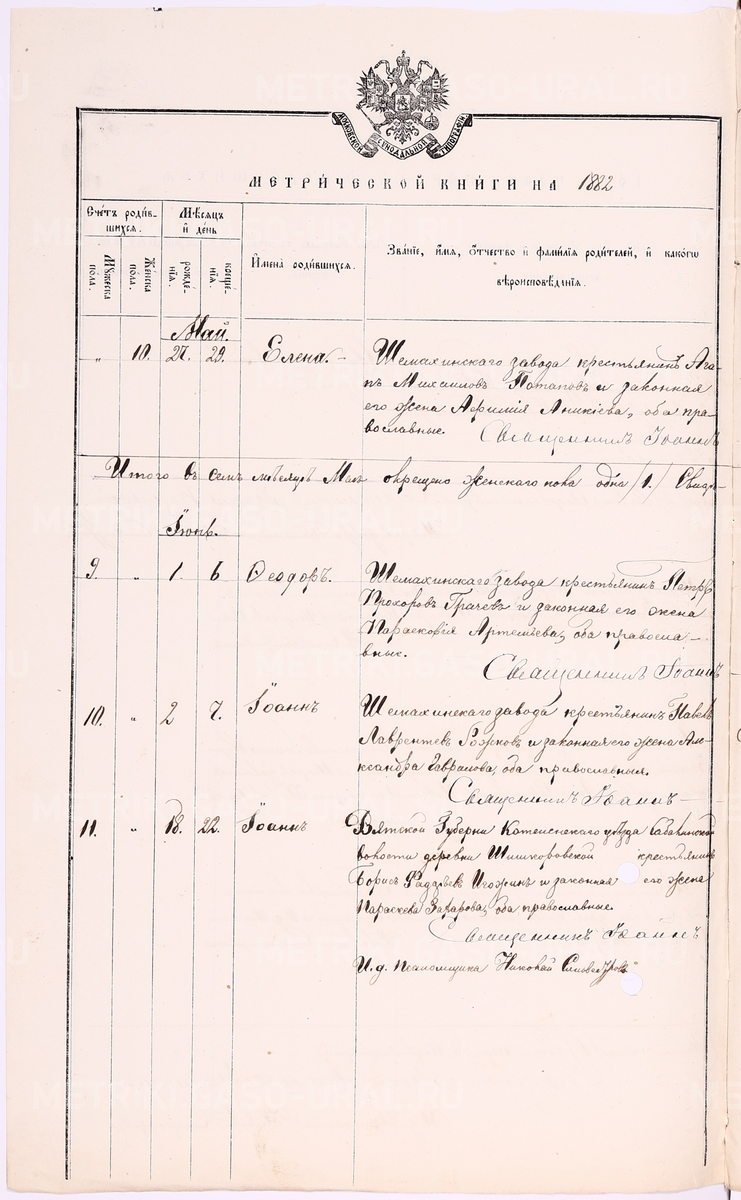 МОСКОВСКОЙ СѴНОДАЛЬНОЙ ТИПОГРАФІИ
МЕТРИ́ЧЕСКОЙ КНИ́ГИ НА 1882
Сче́тъ роди́вшихся.
Мѣ́сяцъ и҆ де́нь
И҆мена̀ роди́вшихся.
Зва́нїе, и҆́мя, ѻ҆́тчество и҆ фами́лїя роди́телей, и҆ како́гѡ вѣроисповѣ́данїя.
Мꙋ́жеска по́ла.
Же́нска по́ла.
рожде́нїя.
креще́нїя.
Май.
„ 10. 27. 29. Елена. Шемахинскаго завода крестьянинъ Ага-
пъ Михаиловъ Потаповъ и законная
его жена Афимія Аникіева, оба пра-
вославные. Священникъ Іоаннъ
Итого въ семъ мѣсяцѣ Маѣ окрещено женскаго пола одна /1./ Свидѣ-
Іюнь.
9. „ 1. 6 Ѳеодоръ. Шемахинскаго завода крестьянинъ Петръ
Прохоровъ Грачевъ и законная его жена
Парасковія Артемьева, оба правосла-
вные.
Священникъ Іоаннъ
10. „ 2 7. Іоаннъ Шемахинскаго завода крестьянинъ Павелъ
Лаврентевъ Рожковъ и законная его жена Але-
ксандра Гаврилова, оба православныя.
Священникъ Іоаннъ
11. „ 18. 22. Іоаннъ Вятской Губерни Котенскаго уѣзда
волости деревни Шишкоровской крестьянинъ
Борисъ Фадѣевъ Игожинъ и законная его жена
Параскева Захарова, оба православные.
Священникъ Іоаннъ
И.д. псаломщика Николай
METRIKI.GASO-URAL.RU